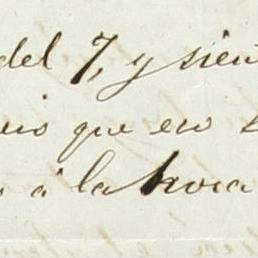 del 7, y sien
que en
á la hora